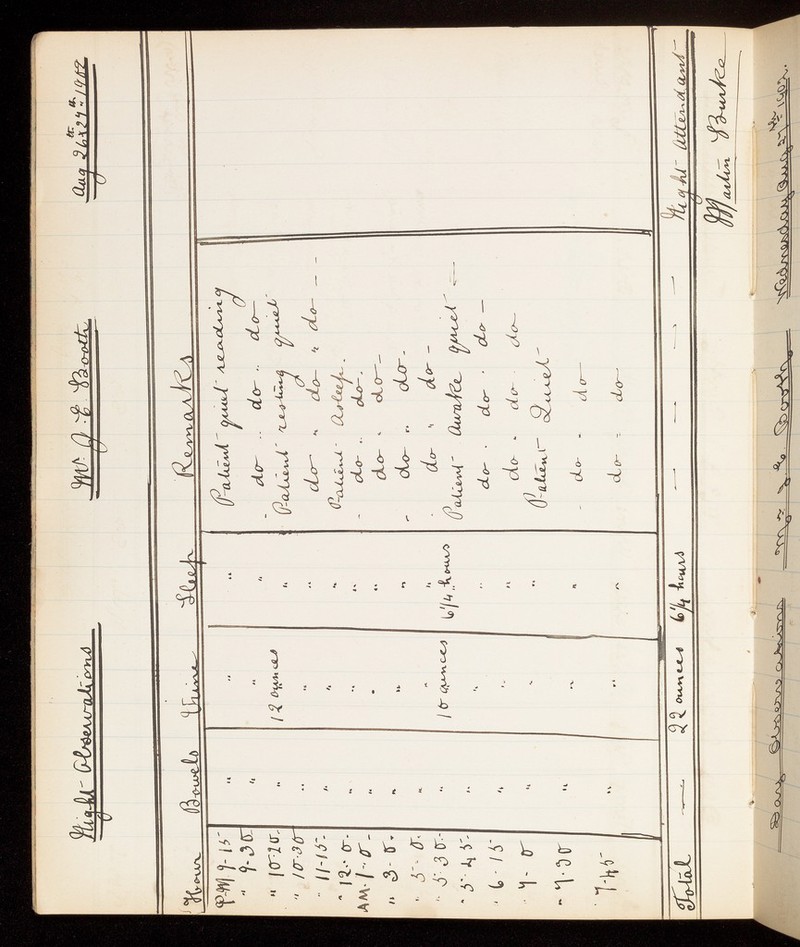 Night Observations Mr J. E Booth Aug 26th & 27th 1902
Hour Bowels Urine Sleep Remarks
P.M 9-15 " " " Patient quiet reading
" 9-30 " " " do " do " do
" 10-20. " 12 ounces " Patient resting quiet
" 10-30 " " " do " do " do - -
" 11-15- " " " Patient Asleep.
" 12. 0. " " " do " do.
AM. 1. 0 - " " " do " do -
" 3. 0. " " " do " do.
" 5. 0. " " " do " do -
" 5. 30. " 10 ounces 6 1/4 hours Patient Awake quiet -
" 5. 45. " " " do . do . do -
" 6 - 15 " " " do . do do
" 7. 0 " " " Patient Quiet -
" 7. 30 " " " do - do
7-45 " " " do = do
Total — 22 ounces 6 1/4 hours — — — — Night Attendant
Martin Burke
Day Observations Mr J. E. Booth Wednesday Aug 27th 1902.